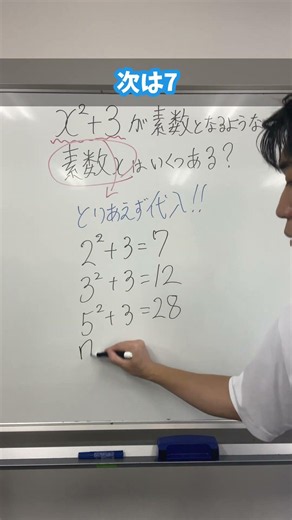 次は7
x²+3が素数となるような
素数xはいくつある？
とりあえず代入!!
2²+3=7
3²+3=12
5²+3=28